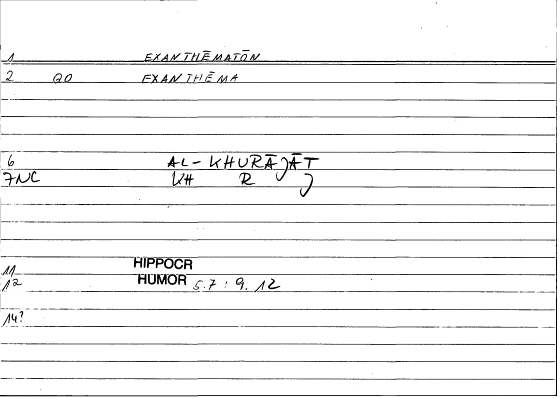 1 EXANTHĒMATŌN
2 QO EXANTHĒMA
6 AL-KHURĀJĀT
7NC KH R J
11 HIPPOCR
12 HUMOR 5.7 : 9. 12
14?